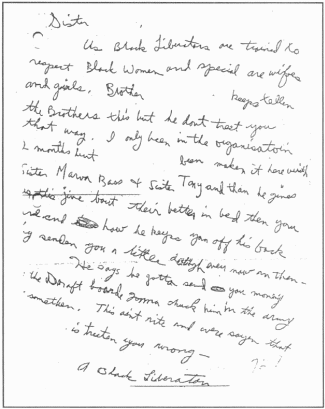 Sister,
Us Black Liberators are trained to
respect Black Women and special are wifes
and girls. Brother keeps tellen
the Brothers this but he dont treat you
that way. I only been in the organisation
2 months but been maken it here with
Sister Marva Bass & Sister Tony and than he gives
us this jive bout their better in bed then you
are and how he keeps you off his back
by senden you a little dough ever now an then.
He says he gotta send you money
the Draft board gonna chuck him in the army
somethen. This aint rite and were sayen that
is treeten you wrong—
A Black Liberator